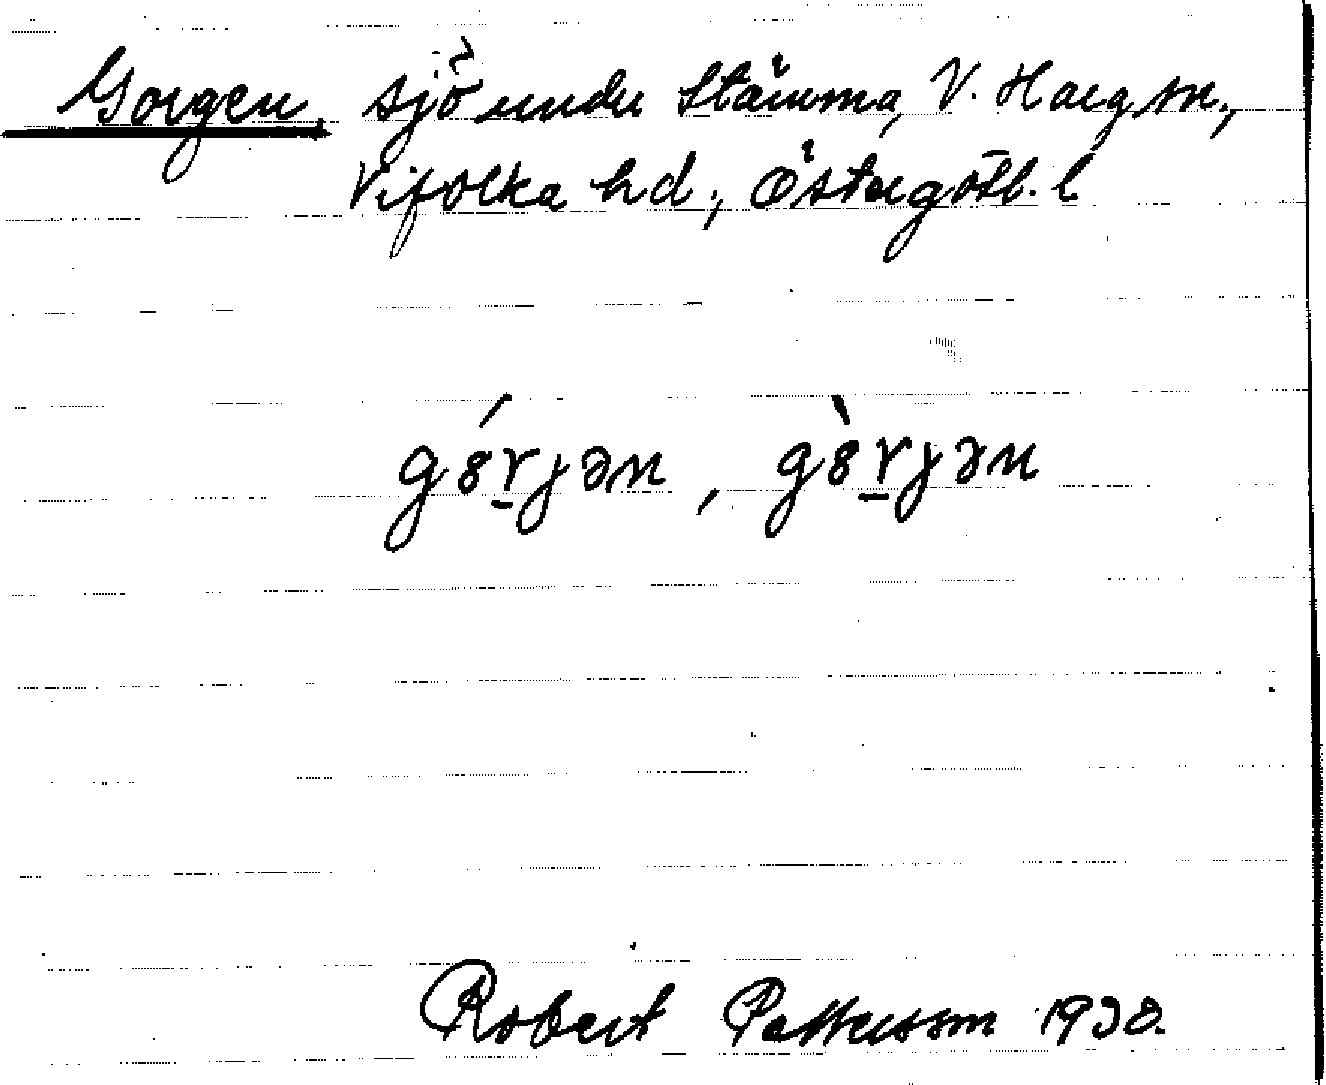 Gorgen, sjö under Stämma, V. Harg sn.,
Vifolka hd, Östergötl. l
gó̱rjən, gò̱rjən
Robert Pettersson 1930.